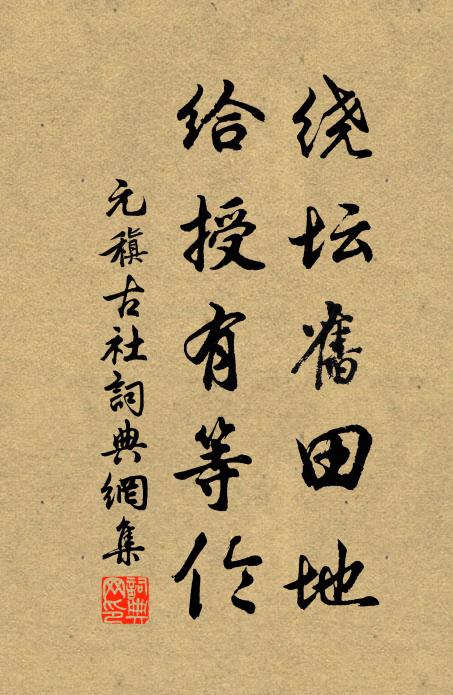 绕坛舊田地
给授有等伦
元稹古社詞典網集
詞典网印